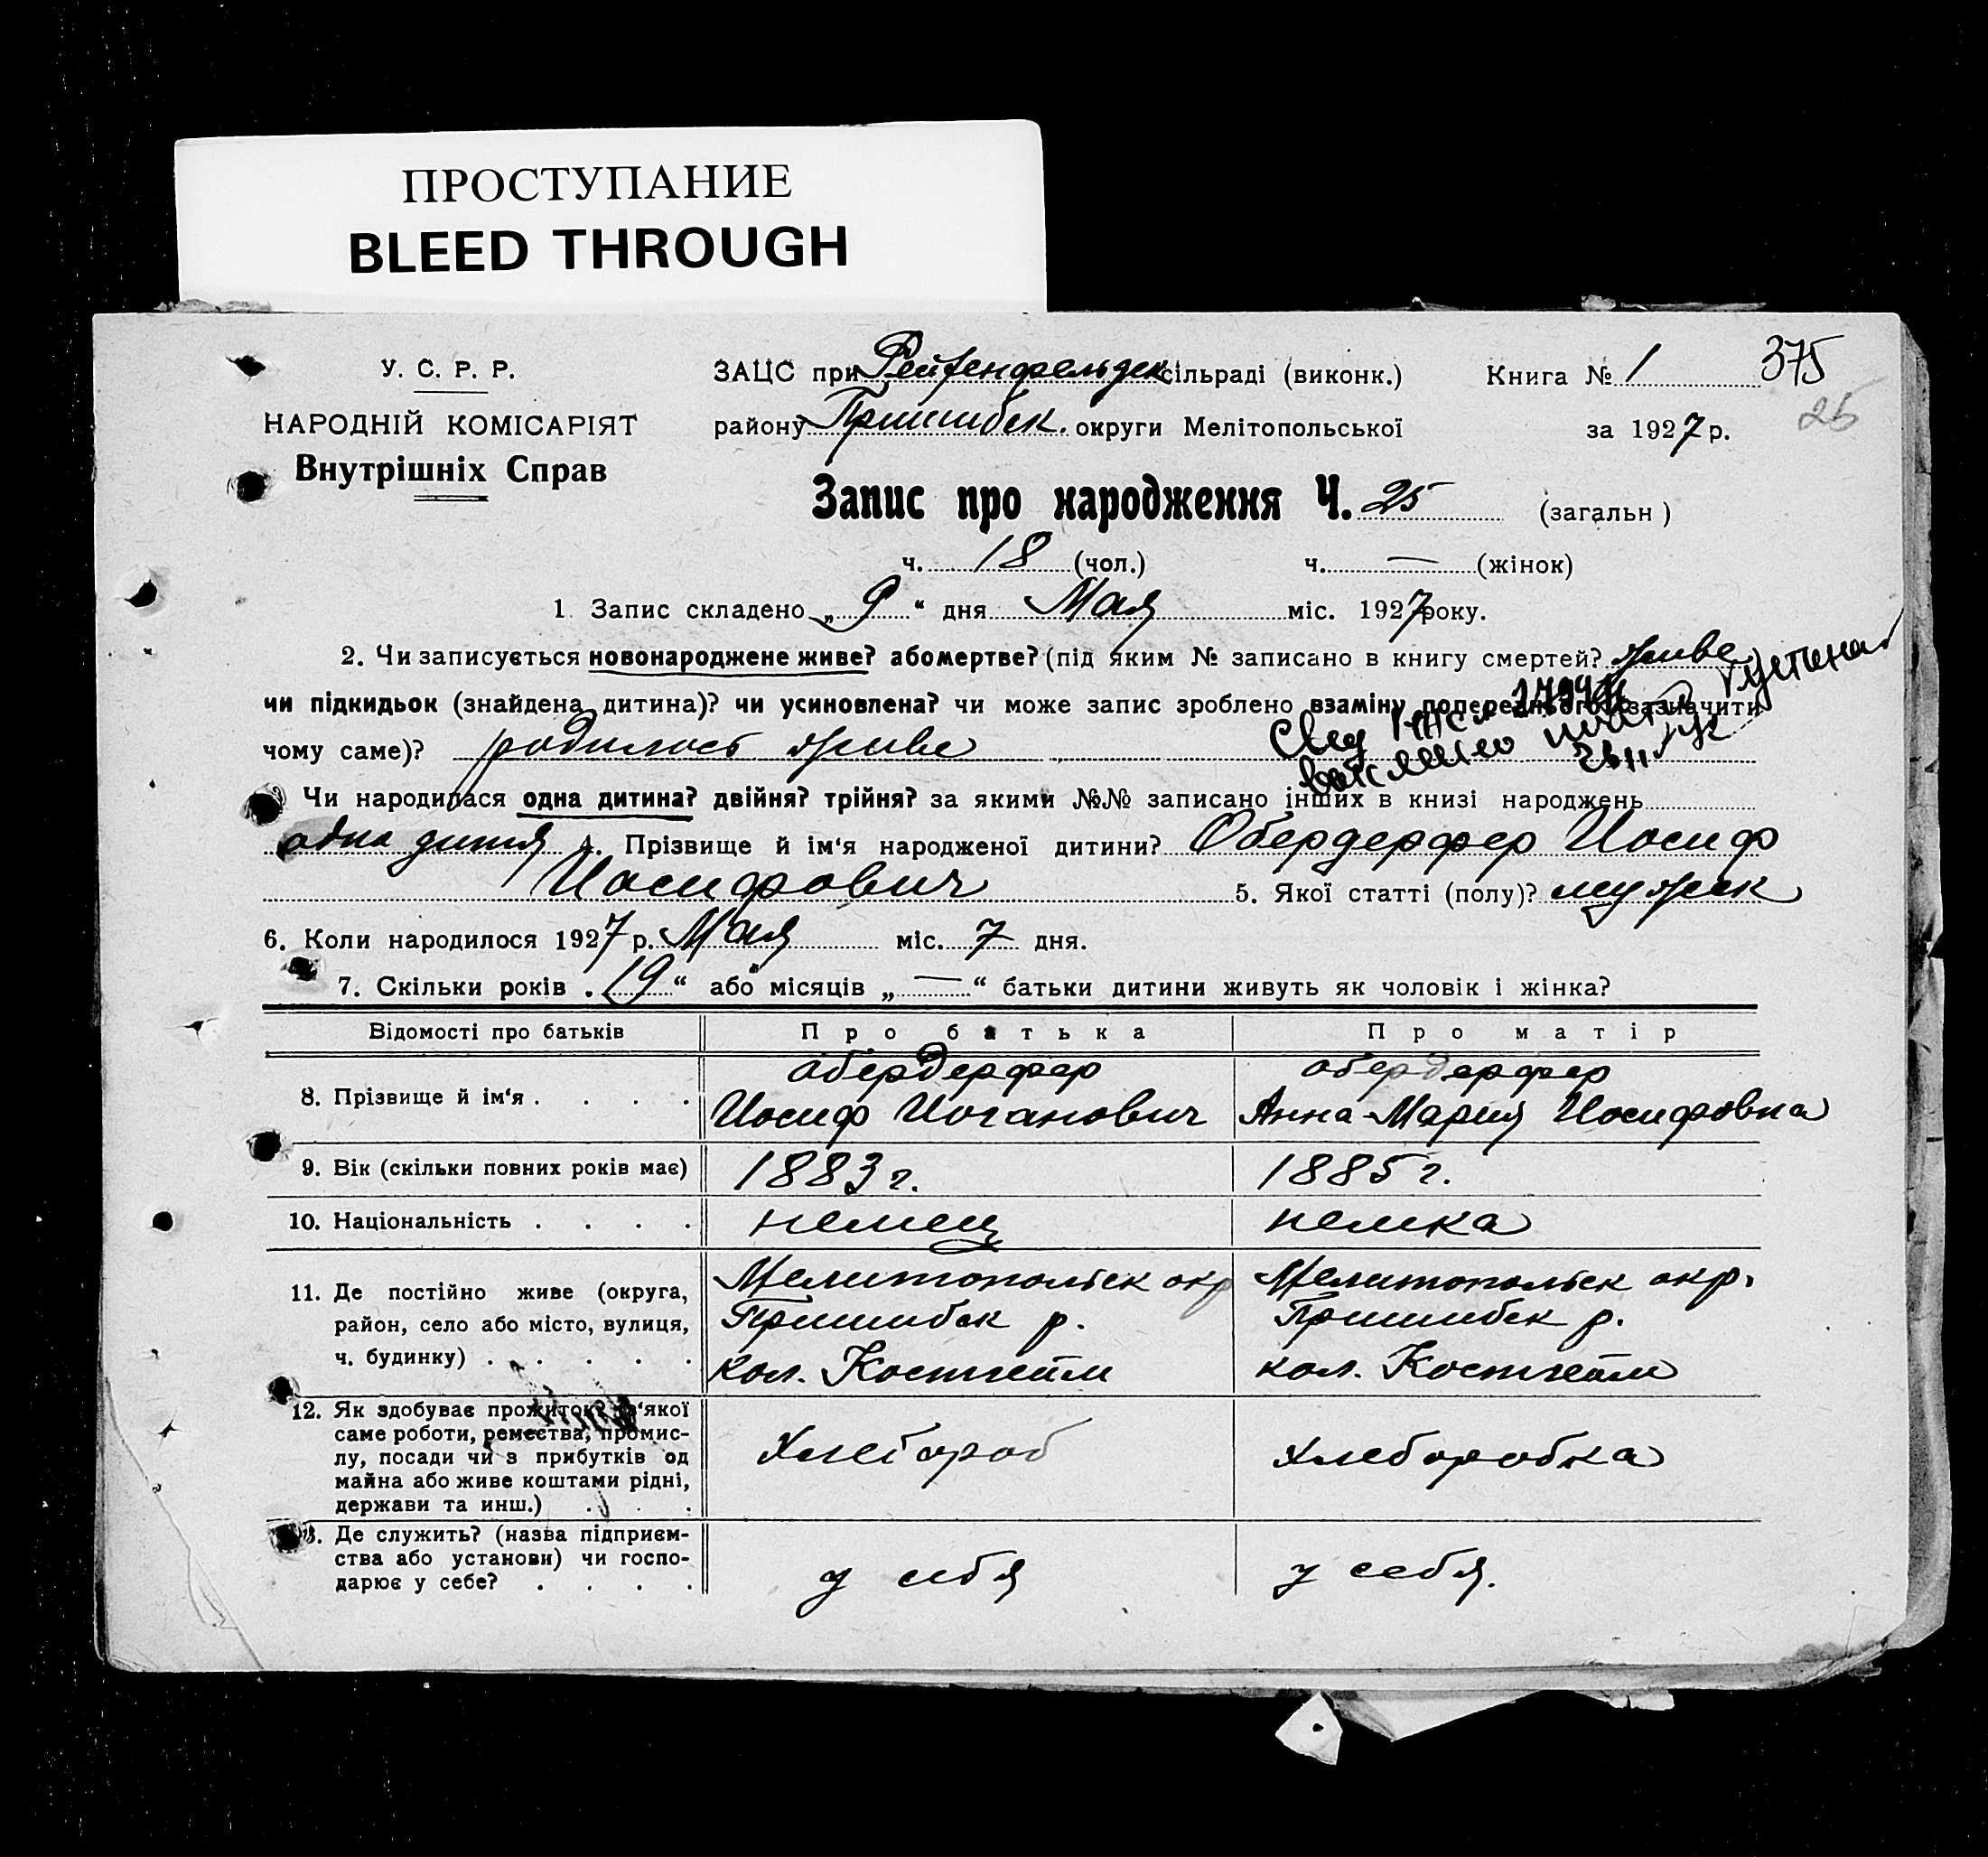 ПРОСТУПАНИЕ
BLEED THROUGH
У. С. Р. Р.
НАРОДНІЙ КОМІСАРІЯТ
Внутрішніх Справ
ЗАЦС при Рейхенфельдск сільраді (виконк.) Книга № 1 375
району Пришибск. округи Мелітопольської за 1927 р. 25
Запис про народження Ч. 25 (загальн)
ч. 18 (чол.) ч. — (жінок)
1. Запис складено „9“ дня Мая міс. 1927 року.
2. Чи записується новонароджене живе? або мертве? (під яким № записано в книгу смертей? живе
чи підкидьок (знайдена дитина)? чи усиновлена? чи може запис зроблено взаміну попереднього (зазначити
чому саме)? родилось живе
Чи народилася одна дитина? двійня? трійня? за якими №№ записано інших в книзі народжень
одна дитя 4. Прізвище й ім‘я народженої дитини? Обердерфер Иосиф
Иосифович 5. Якої статті (полу)? мужск
6. Коли народилося 1927 р. Мая міс. 7 дня.
7. Скільки років „19“ або місяців „—“ батьки дитини живуть як чоловік і жінка?
Відомості про батьків Про батька Про матір
8. Прізвище й ім‘я . . . . Обердерфер Иосиф Иоганович Обердерфер Анна-Мария Иосифовна
9. Вік (скільки повних років має) 1883 г. 1885 г.
10. Національність . . . . немец немка
11. Де постійно живе (округа, Мелитопольск окр Мелитопольск окр.
район, село або місто, вулиця, Пришибск р. Пришибск р.
ч. будинку) . . . . . кол. Костгейм кол. Костгейм
12. Як здобуває прожиток? з‘якої
саме роботи, ремества, промис-
лу, посади чи з прибутків од Хлебороб Хлеборобка
майна або живе коштами рідні,
держави та инш.) . . .
3. Де служить? (назва підприєм-
ства або установи) чи госпо-
дарює у себе? . . . . у себя у себя.